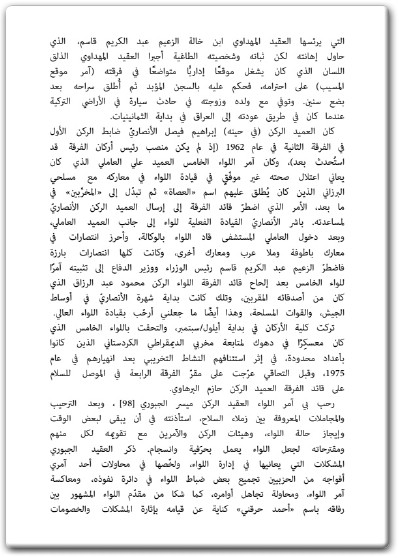 التي يرئسها العقيد المهداوي ابن خالة الزعيم عبد الكريم قاسم، الذي
حاول إهانته لكن ثباته وشخصيته الطاغية أجبرا العقيد المهداوي الذلق
اللسان الذي كان يشغل موقعًا إداريًا متواضعًا في فرقته (آمر موقع
المسيب) على احترامه، فحكم عليه بالسجن المؤبد ثم أُطلق سراحه بعد
بضع سنين. وتوفي مع ولده وزوجته في حادث سيارة في الأراضي التركية
عندما كان في طريق عودته إلى العراق في بداية الثمانينيات.
كان العميد الركن (في حينه) إبراهيم فيصل الأنصاريّ ضابط الركن الأول
في الفرقة الثانية في عام 1962 (إذ لم يكن منصب رئيس أركان الفرقة قد
استُحدث بعد)، وكان آمر اللواء الخامس العميد علي العاملي الذي كان
يعاني اعتلال صحته غير موفّق في قيادة اللواء في معاركه مع مسلحي
البرزاني الذين كان يُطلق عليهم اسم «العصاة» ثم تبدّل إلى «المخرّبين» في
ما بعد، الأمر الذي اضطرّ قائد الفرقة إلى إرسال العميد الركن الأنصاريّ
لمساعدته. باشر الأنصاريّ القيادة الفعلية للواء إلى جانب العميد العاملي،
وبعد دخول العاملي المستشفى قاد اللواء بالوكالة، وأحرز انتصارات في
معارك باطوفة وملا عرب ومعارك أخرى، وكانت كلها انتصارات بارزة
فاضطرّ الزعيم عبد الكريم قاسم رئيس الوزراء ووزير الدفاع إلى تثبيته آمرًا
للواء الخامس بعد إلحاح قائد الفرقة اللواء الركن محمود عبد الرزاق الذي
كان من أصدقائه المقربين، وتلك كانت بداية شهرة الأنصاريّ في أوساط
الجيش، والقوات المسلحة، وهذا أيضًا ما جعلني أرحّب بقيادة اللواء العالي.
تركت كلية الأركان في بداية أيلول/سبتمبر، والتحقت باللواء الخامس الذي
كان معسكِرًا في دهوك لمتابعة مخربي الديمقراطي الكردستاني الذين كانوا
بأعداد محدودة، في إثر استئنافهم النشاط التخريبي بعد انهيارهم في عام
1975، وقبل التحاقي عرّجت على مقرّ الفرقة الرابعة في الموصل للسلام
على قائد الفرقة العميد الركن حازم البرهاوي.
رحب بي آمر اللواء العقيد الركن ميسر الجبوري [98] ، وبعد الترحيب
والمجاملات المعروفة بين زملاء السلاح، استأذنته في أن يبقى لبعض الوقت
وإيجاز حالة اللواء، وهيئات الركن والآمرين مع تقويمه لكل منهم
ومقترحاته لجعل اللواء يعمل بحرّفية وانسجام. ذكر العقيد الجبوري
المشكلات التي يعانيها في إدارة اللواء، ولخّصها في محاولات أحد آمري
أفواجه من الحزبيين تجميع بعض ضباط اللواء في دائرة نفوذه، ومعاكسة
آمر اللواء، ومحاولة تجاهل أوامره، كما شكا من مقدّم اللواء المشهور بين
رفاقه باسم «أحمد حرقني» كناية عن قيامه بإثارة المشكلات والخصومات